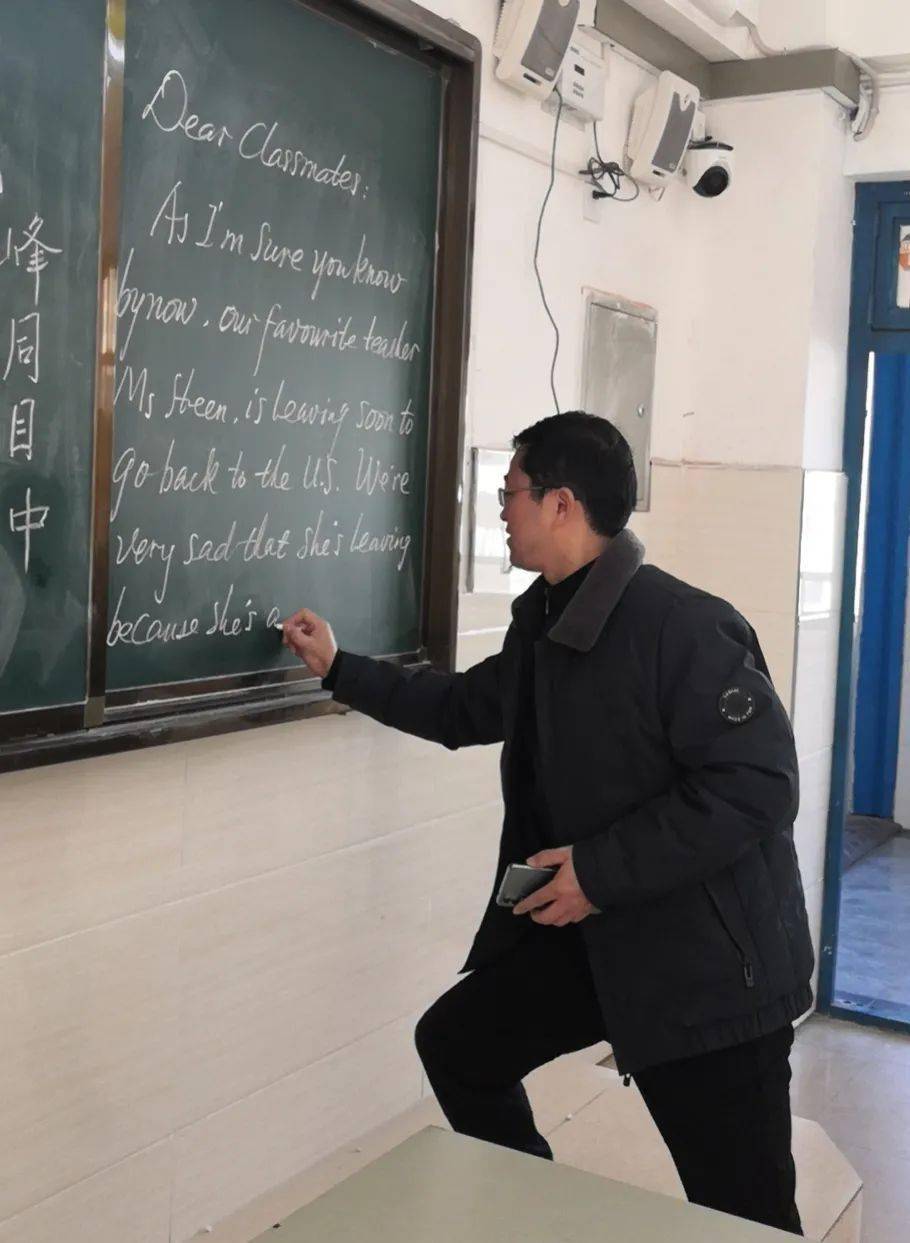 峰
同
目
中
Dear Classmates:
As I'm sure you know
by now, our favourite teacher
Ms Steen, is leaving soon to
go back to the U.S. We're
very sad that she's leaving
because she's a